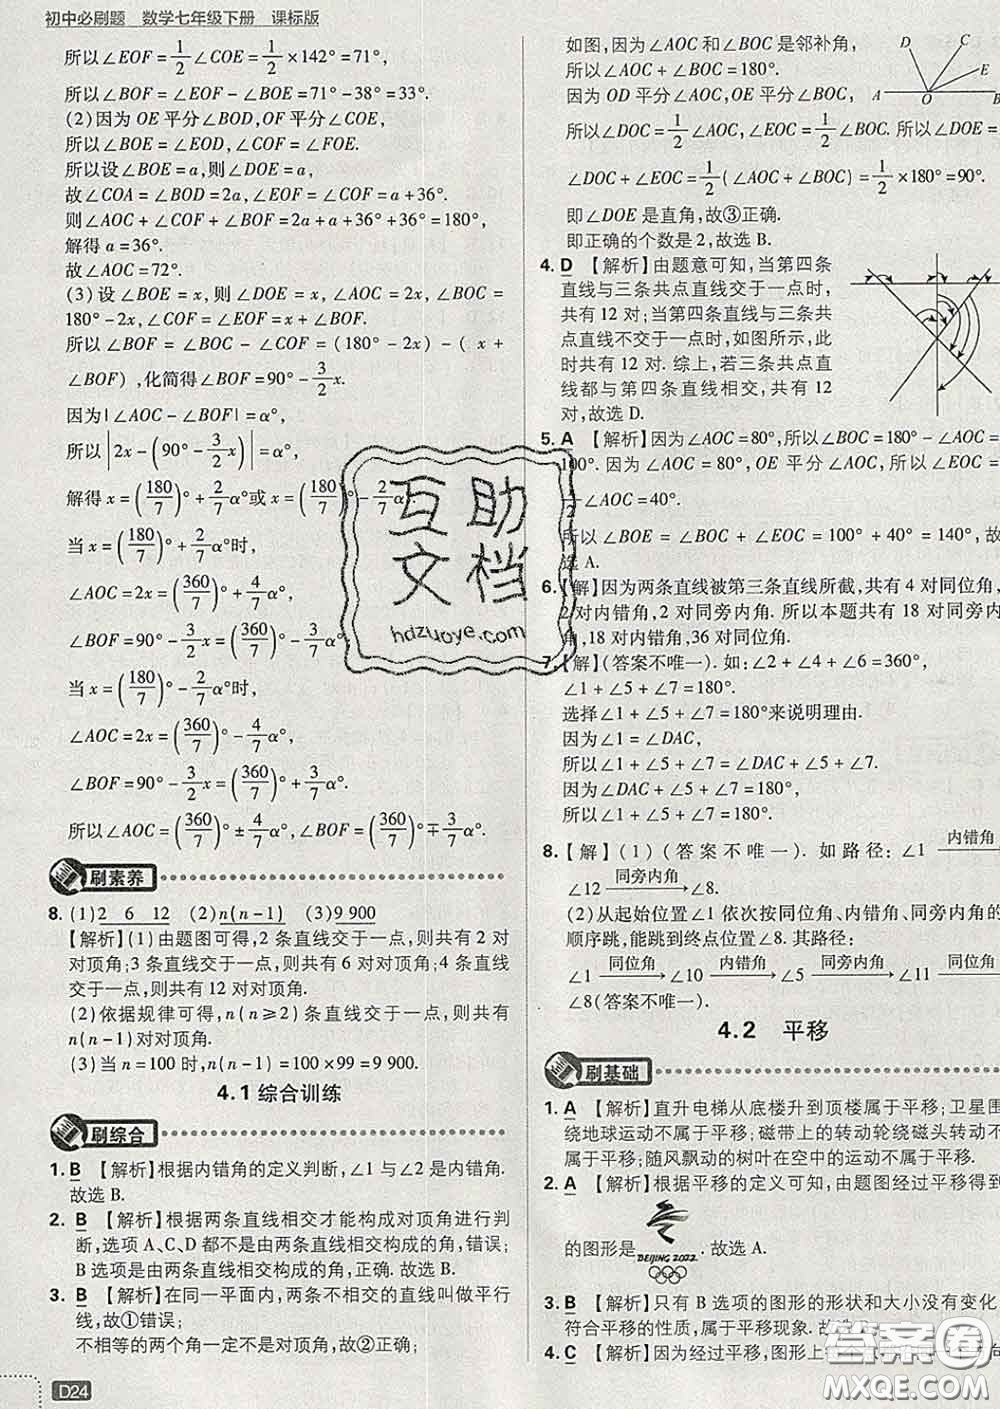 初中必刷题 数学七年级下册 课标版
所以∠EOF=1/2∠COE=1/2×142°=71°,
所以∠BOF=∠EOF-∠BOE=71°-38°=33°.
(2)因为OE平分∠BOD,OF平分∠COE,
所以∠BOE=∠EOD,∠COF=∠FOE.
所以设∠BOE=a,则∠DOE=a,
故∠COA=∠BOD=2a,∠EOF=∠COF=a+36°.
则∠AOC+∠COF+∠BOF=2a+a+36°+36°=180°,
解得a=36°.
故∠AOC=72°.
(3)设∠BOE=x,则∠DOE=x,∠AOC=2x,∠BOC=
180°-2x,∠COF=∠EOF=x+∠BOF.
所以∠BOF=∠BOC-∠COF=(180°-2x)-(x+
∠BOF),化简得∠BOF=90°-3/2x.
因为|∠AOC-∠BOF|=α°,
所以|2x-(90°-3/2x)|=α°,
解得x=(180/7)°+2/7α°或x=(180/7)°-2/7α°.
当x=(180/7)°+2/7α°时,
∠AOC=2x=(360/7)°+4/7α°,
∠BOF=90°-3/2x=(360/7)°-3/7α°;
当x=(180/7)°-2/7α°时,
∠AOC=2x=(360/7)°-4/7α°,
∠BOF=90°-3/2x=(360/7)°+3/7α°.
所以∠AOC=(360/7)°±4/7α°,∠BOF=(360/7)°∓3/7α°.
刷素养
8. (1)2 6 12 (2)n(n-1) (3)9 900
【解析】(1)由题图可得,2条直线交于一点,则共有2对
对顶角;3条直线交于一点,则共有6对对顶角;4条直线
交于一点,则共有12对对顶角.
(2)依据规律可得,n(n≥2)条直线交于一点,则共有
n(n-1)对对顶角.
(3)当n=100时,n(n-1)=100×99=9 900.
4.1 综合训练
刷综合
1. B 【解析】根据内错角的定义判断,∠1与∠2是内错角.
故选B.
2. B 【解析】根据两条直线相交才能构成对顶角进行判
断,选项A、C、D都不是由两条直线相交构成的角,错误;
B选项是由两条直线相交构成的角,正确.故选B.
3. B 【解析】在同一平面内,两条不相交的直线叫做平行
线,故①错误;
不相等的两个角一定不是对顶角,故②正确;
D24
如图,因为∠AOC和∠BOC是邻补角,
所以∠AOC+∠BOC=180°.
因为OD平分∠AOC,OE平分∠BOC,
D
C
E
A
O
B
所以∠DOC=1/2∠AOC,∠EOC=1/2∠BOC.所以∠DOE=
∠DOC+∠EOC=1/2(∠AOC+∠BOC)=1/2×180°=90°.
即∠DOE是直角,故③正确.
即正确的个数是2,故选B.
4. D 【解析】由题意可知,当第四条
直线与三条共点直线交于一点时,
共有12对;当第四条直线与三条
共点直线不交于一点时,如图所示,此
时共有12对.综上,若三条共点直
线都与第四条直线相交,共有12
对,故选D.
5. A 【解析】因为∠AOC=80°,所以∠BOC=180°-∠AOC=
100°.因为∠AOC=80°,OE平分∠AOC,所以∠EOC=
1/2∠AOC=40°.
所以∠BOE=∠BOC+∠EOC=100°+40°=140°,故
选A.
6.【解】因为两条直线被第三条直线所截,共有4对同位角,
2对内错角,2对同旁内角.所以本题共有18对同旁内
角,18对内错角,36对同位角.
7.【解】(答案不唯一).如:∠2+∠4+∠6=360°,
∠1+∠5+∠7=180°.
选择∠1+∠5+∠7=180°来说明理由.
因为∠1=∠DAC,
所以∠1+∠5+∠7=∠DAC+∠5+∠7.
因为∠DAC+∠5+∠7=180°,
所以∠1+∠5+∠7=180°.
8.【解】(1)(答案不唯一).如路径:∠1 内错角→
∠12 同旁内角→ ∠8.
(2)从起始位置∠1依次按同位角、内错角、同旁内角的
顺序跳,能跳到终点位置∠8.其路径:
∠1 同位角→ ∠10 内错角→ ∠5 同旁内角→ ∠11 同位角→
∠8(答案不唯一).
4.2 平移
刷基础
1. A 【解析】直升电梯从底楼升到顶楼属于平移;卫星围
绕地球运动不属于平移;磁带上的转动轮绕磁头转动不
属于平移;随风飘动的树叶在空中的运动不属于平移.
2. A 【解析】根据平移的定义可知,由题图经过平移得到
的图形是 BEIJING 2022 .故选A.
3. B 【解析】只有B选项的图形的形状和大小没有变化,
符合平移的性质,属于平移现象.故选B.
4. C 【解析】因为经过平移,图形上的
互助
文档
hdzuoye.com
答案圈
MXQE.COM